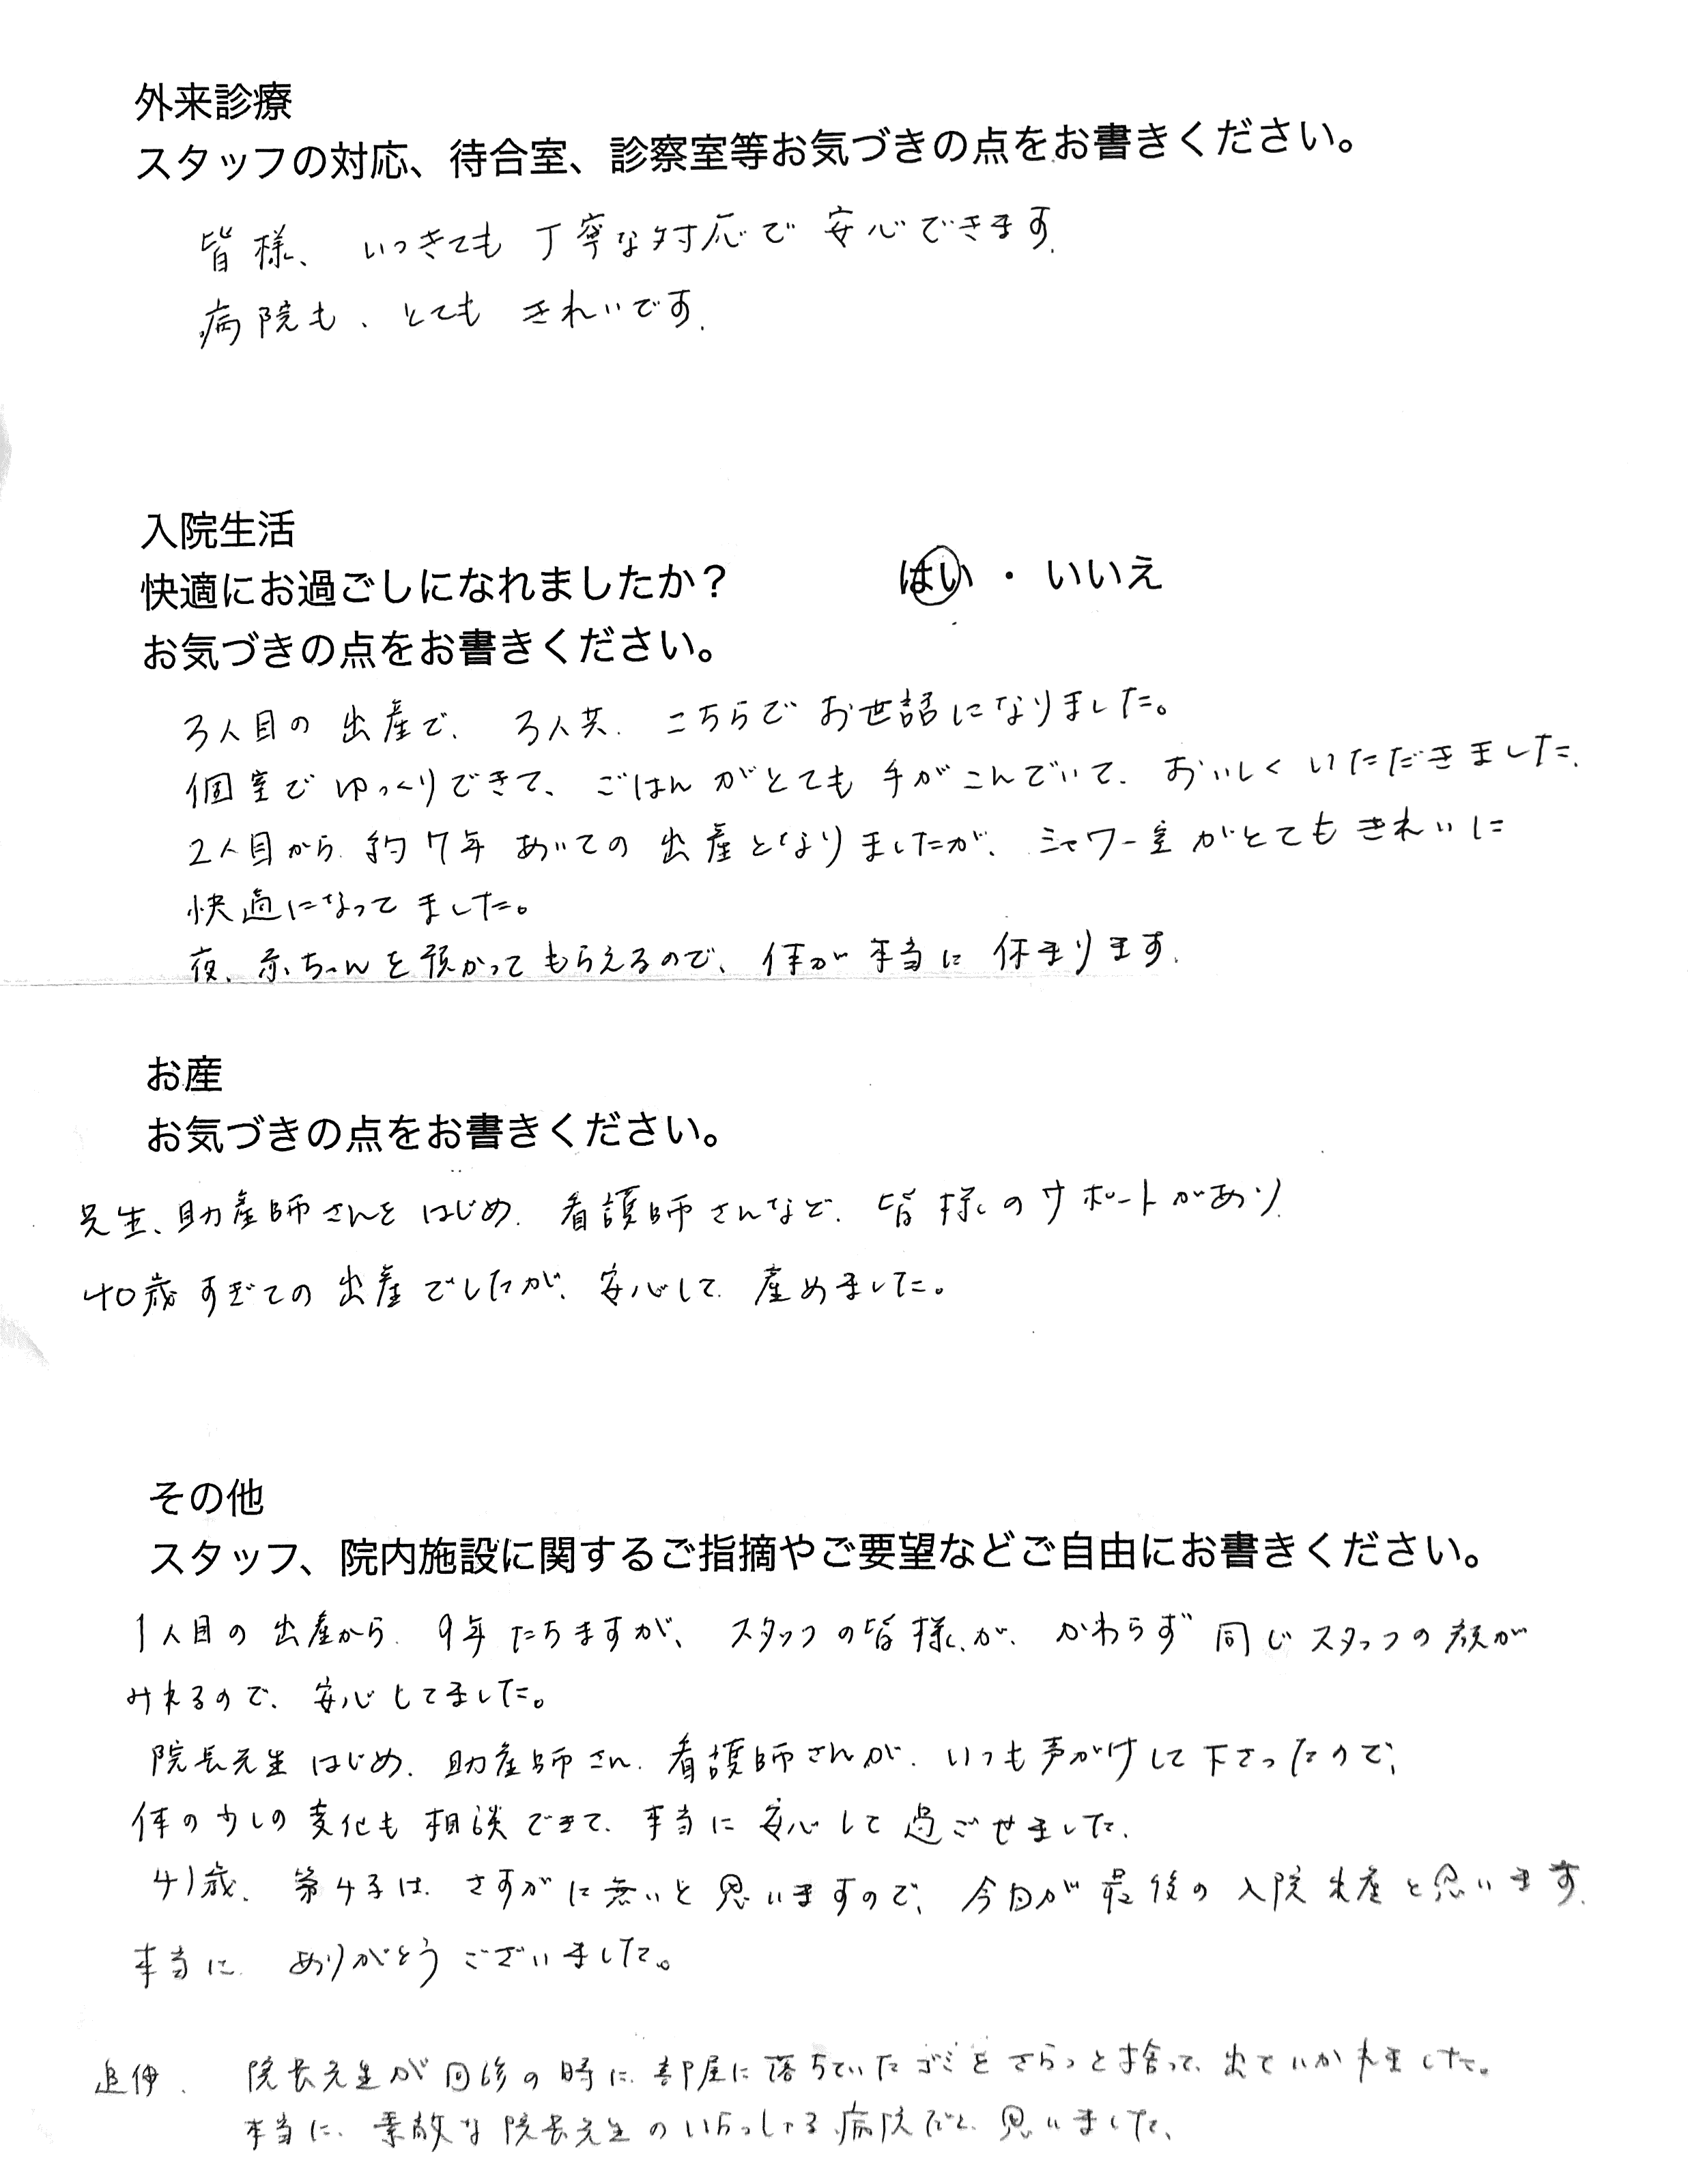 外来診療
スタッフの対応、待合室、診察室等お気づきの点をお書きください。
皆様、いつきても丁寧な対応で安心できます.
病院も、とてもきれいです.
入院生活
快適にお過ごしになれましたか？ はい・いいえ
お気づきの点をお書きください。
3人目の出産で、3人共、こちらでお世話になりました。
個室でゆっくりできて、ごはんがとても手がこんでいて、おいしくいただきました.
2人目から約7年あいての出産となりましたが、シャワー室がとてもきれいに
快適になってました。
夜、赤ちゃんを預かってもらえるので、体が本当に休まります.
お産
お気づきの点をお書きください。
先生、助産師さんをはじめ、看護師さんなど、皆様のサポートがあり、
40歳すぎての出産でしたが、安心して産めました。
その他
スタッフ、院内施設に関するご指摘やご要望などご自由にお書きください。
1人目の出産から、9年たちますが、スタッフの皆様が、かわらず同じスタッフの顔が
みれるので、安心してました。
院長先生はじめ、助産師さん、看護師さんが、いつも声がけして下さったので、
体の少しの変化も相談できて、本当に安心して過ごせました.
41歳、第4子は、さすがに無いと思いますので、今回が最後の入院出産と思います.
本当に、ありがとうございました。
追伸、院長先生が回診の時に、部屋に落ちていたゴミをさらっと捨って、出ていかれました。
本当に、素敵な院長先生のいらっしゃる病院だと、思いました、